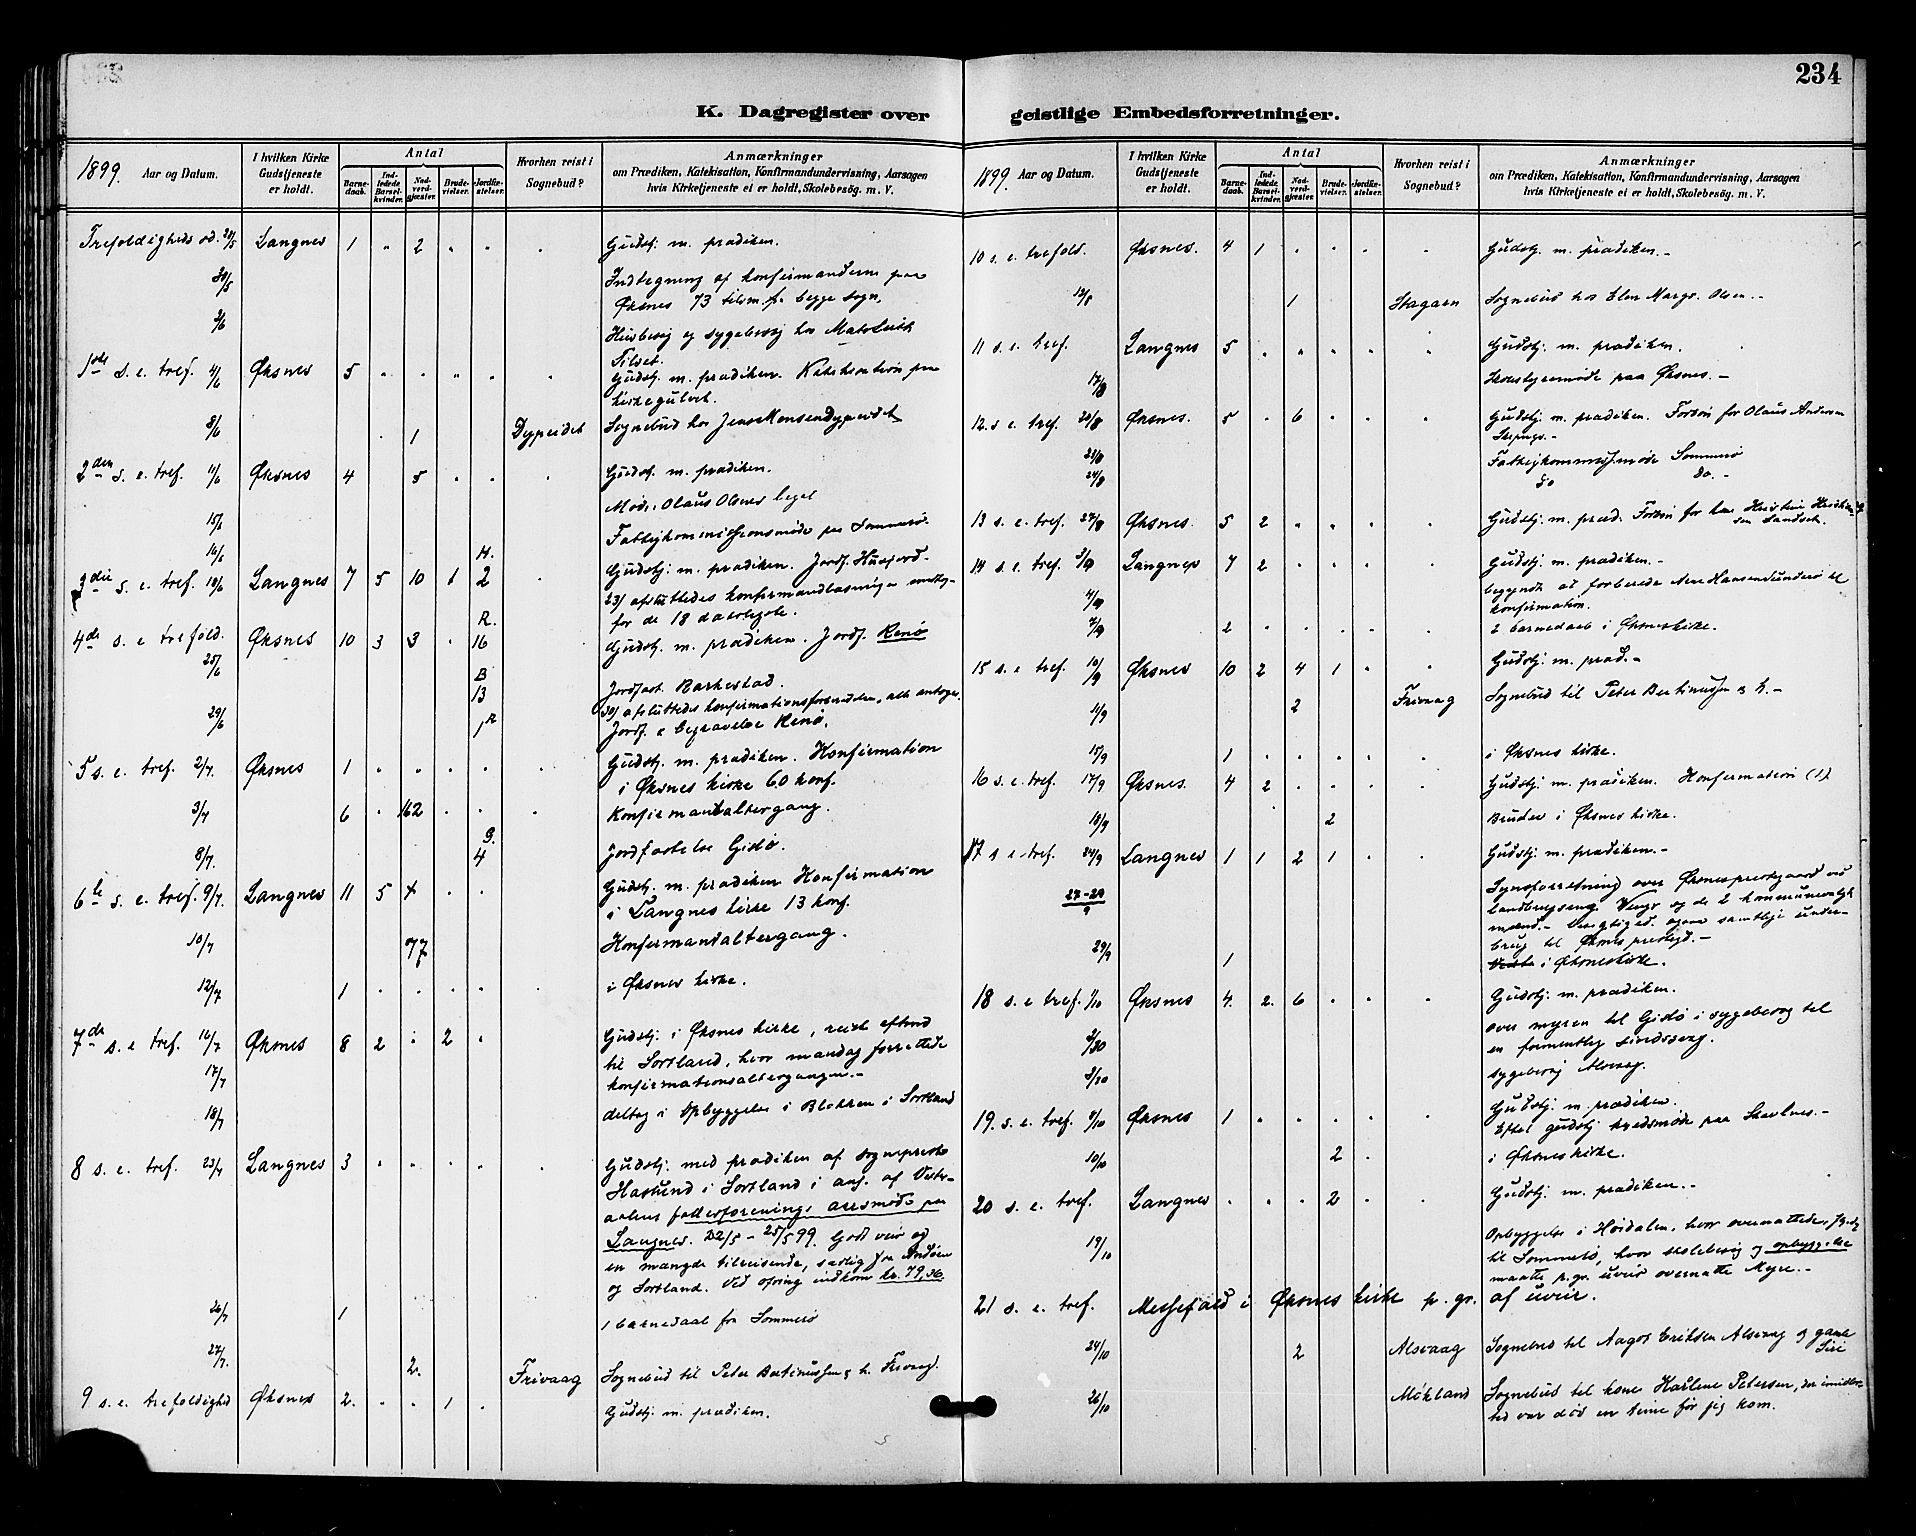 234
K. Dagregister over geistlige Embedsforretninger.
1899. Aar og Datum. I hvilken Kirke Gudstjeneste er holdt. Antal Barnedaab. Indledede Barselkvinder. Nadverdgjæster. Brudevielser. Jordfæstelser. Hvorhen reist i Sognebud? Anmærkninger om Prædiken, Katekisation, Konfirmandundervisning, Aarsagen hvis Kirketjeneste ei er holdt, Skolebesøg. m. V.
Trefoldigheds sd. 28/5 Langnes 1 " 2 " " " Gudstj. m. prædiken.
30/5 Indtegning af konfirmanderne paa
Øksnes 73 tilsm. fr. begge sogn.
2/6 Husbesøg og sygebesøg hos
Tilset.
1ste s. e. tref. 4/6 Øksnes 5 " " " " " Gudstj. m. prædiken. Katekisation paa
kirkegulvet.
8/6 1 Dypeidet Sognebud hos Jens Monsen Dypeidet
2den s. e. tref. 11/6 Øksnes 4 5 " " " Gudstj. m. prædiken.
Møde Olaus Olsens
15/6 Fattigkommissionsmøde paa Sommerø.
16/6 H.
3die s. e. tref. 18/6 Langnes 7 5 10 1 2 " Gudstj. m. prædiken. Jordf.
23/ afsluttedes konfirmandlæsningen
for de 18
R.
4de s. e. trefold. Øksnes 10 3 3 " 16 Gudstj. m. prædiken. Jordf. Renø
25/6 B
13 Jordfæst. Barkestad.
30/ afsluttedes konfirmationsforberedelsen, alle antoges.
29/6 R Jordf. & begravelse Renø.
5 s. e. tref. 2/7. Øksnes 1 " " " " " Gudstj. m. prædiken. Konfirmation
i Øksnes kirke 60 konf.
3/7 6 " 162 " " " Konfirmantaltergang.
G.
8/7. 4 Jordfæstelse Gisø.
6te s. e. tref. 9/7. Langnes 11 5 4 " " Gudstj. m. prædiken Konfirmation
i Langnes kirke 13 konf.
10/7 77 Konfirmandaltergang.
12/7 1 " " " " " i Øksnes kirke.
7de s. e tref. 16/7 Øksnes 8 2 " 2 " Gudstj. i Øksnes kirke, reiste eftmd
til Sortland, hvor mandag forrettede
17/7 konfirmationsaltergangen.-
18/7 deltog i opbyggelse i Blokken i Sortland
8 s. e. tref. 23/7 Langnes 3 " " " " " Gudstj. med prædiken af sogneprest
Haslund i Sortland i anl. af Vester-
aalens fællesforenings aarsmøde paa
Langnes. 22/5 - 25/5 99. Godt veir og
en mængde tilreisende, særlig fra Andøen
og Sortland. Ved ofring indkom kr. 79,36.
26/7 1 1 barnedaab fra Sommerø
27/7. 2. Frivaag Sognebud til Peter Bertinussen & h. Frivaag.
9 s. e. trefoldighed Øksnes 2. " " 1 " Gudstj. m. prædiken.
1899. Aar og Datum. I hvilken Kirke Gudstjeneste er holdt. Antal Barnedaab. Indledede Barselkvinder. Nadverdgjæster. Brudevielser. Jordfæstelser. Hvorhen reist i Sognebud? Anmærkninger om Prædiken, Katekisation, Konfirmandundervisning, Aarsagen hvis Kirketjeneste ei er holdt, Skolebesøg. m. V.
10 s. e. trefold. Øksnes. 4 1 " " " " Gudstj. m. prædiken.-
12/8 1 Sognebud hos Elen Margr. Olsen.-
11 s. e. tref. Langnes 5 " " " " " Gudstj. m. prædiken.
17/8 Skolestyremøde paa Øksnes.-
12. s. e. tref. 20/8 Øksnes. 5 " 6 " " " Gudstj. m. prædiken. Forbøn for Olaus Andersen
21/8 Fattigkommissj.møde Sommerø
24/8 do do.-
13 s. e. tref. 27/8 Øksnes. 5 2 " " " " Gudstj. m. præd. Forbøn for
14 s. e. tref. 3/9 Langnes 7 2 " " " " Gudstj. m. prædiken.-
4/9 begyndt at forberede til
konfirmation.
7/9 2 " " " " " 2 barnedaab i Øksneskirke.
15 s. e tref. 10/9 Øksnes 10 2 4 1 " " Gudstj. m. præd.-
11/9 2 Frivaag Sognebud til Peter Bertinussen & h.-
15/9 1 " " " " " i Øksnes kirke.
16 s. e. tref. 17/9 Øksnes. 4 2 " " " " Gudstj. m. prædiken. Konfirmation (1).
18/9 2 Bruder i Øksnes kirke.
17 s. e. tref. 24/9 Langnes 1 1 2 1 " " Gudstj. m. prædiken.-
27-29/9 Synsforretning over Øksnes prestegaard ved
landbrugsing. og de 2 kommunevalgte
mænd. - samtlige under-
brug til Øksnes prestegd.-
29/9 1 i Øksneskirke.
18 s. e tref. 1/10 Øksnes 4. 2. 6 " " " Gudstj. m. prædiken.
2/10 over myren til Gisø i sygebesøg til
en formentlig sindssyg.
3/10 sygebesøg Alsvaag.
19. s. e. tref. 8/10 Øksnes 1 " " " " " Gudstj. m. prædiken.
Efter gudstj. kredsmøde paa Skavlnes.-
10/10 2 " i Øksneskirke.
20 s. e. tref. Langnes " " " 2 " " Gudstj. m. prædiken.-
19/10 Opbyggelse i Høidalen, hvor overnattede,
til Sommerø, hvor skolebesøg og opbyggelse
maatte p. gr. uveir overnatte Myre.-
21 s. e. tref. Messefald i Øksnes kirke p. gr. af uveir.
24/10 2 Alsvaag Sognebud til Aagot Eriksen Alsvaag og gamle
Siri
26/10 Møkland Sognebud til kone Karlene Petersen, der imidler-
tid var død en time før jeg kom.